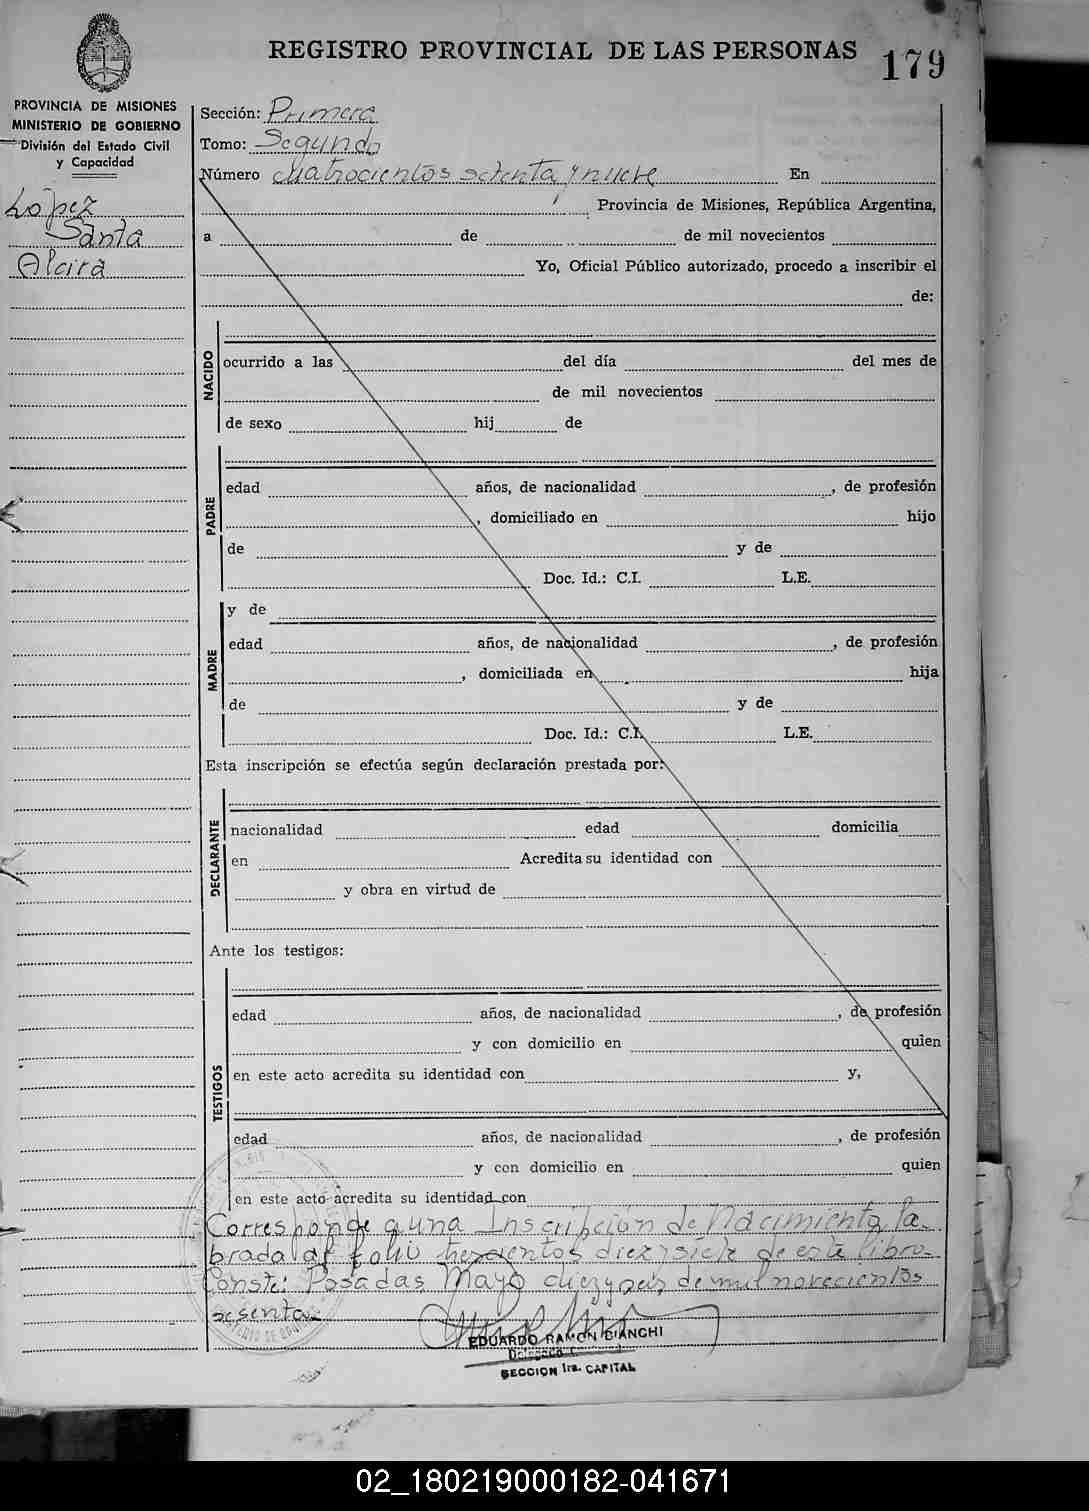 REGISTRO PROVINCIAL DE LAS PERSONAS
179
PROVINCIA DE MISIONES
MINISTERIO DE GOBIERNO
División del Estado Civil
y Capacidad
Lopez
Santa
Alcira
Sección: Primera
Tomo: Segundo
Número cuatrocientos setenta y nueve En
Provincia de Misiones, República Argentina,
a de de mil novecientos
Yo, Oficial Público autorizado, procedo a inscribir el
de:
NACIDO
ocurrido a las del día del mes de
de mil novecientos
de sexo hij de
PADRE
edad años, de nacionalidad , de profesión
, domiciliado en hijo
de y de
Doc. Id.: C.I. L.E.
MADRE
y de
edad años, de nacionalidad , de profesión
, domiciliada en hija
de y de
Doc. Id.: C.I. L.E.
Esta inscripción se efectúa según declaración prestada por:
DECLARANTE
nacionalidad edad domicilia
en Acredita su identidad con
y obra en virtud de
Ante los testigos:
TESTIGOS
edad años, de nacionalidad , de profesión
y con domicilio en quien
en este acto acredita su identidad con y,
edad años, de nacionalidad , de profesión
y con domicilio en quien
en este acto acredita su identidad con
Corresponde a una Inscripción de Nacimiento la-
brada al folio diez y siete de este libro-
Conste: Posadas, Mayo diez y seis de mil novecientos
sesenta
EDUARDO RAMON BIANCHI
Delegado
SECCION 1ra. CAPITAL
02_180219000182-041671